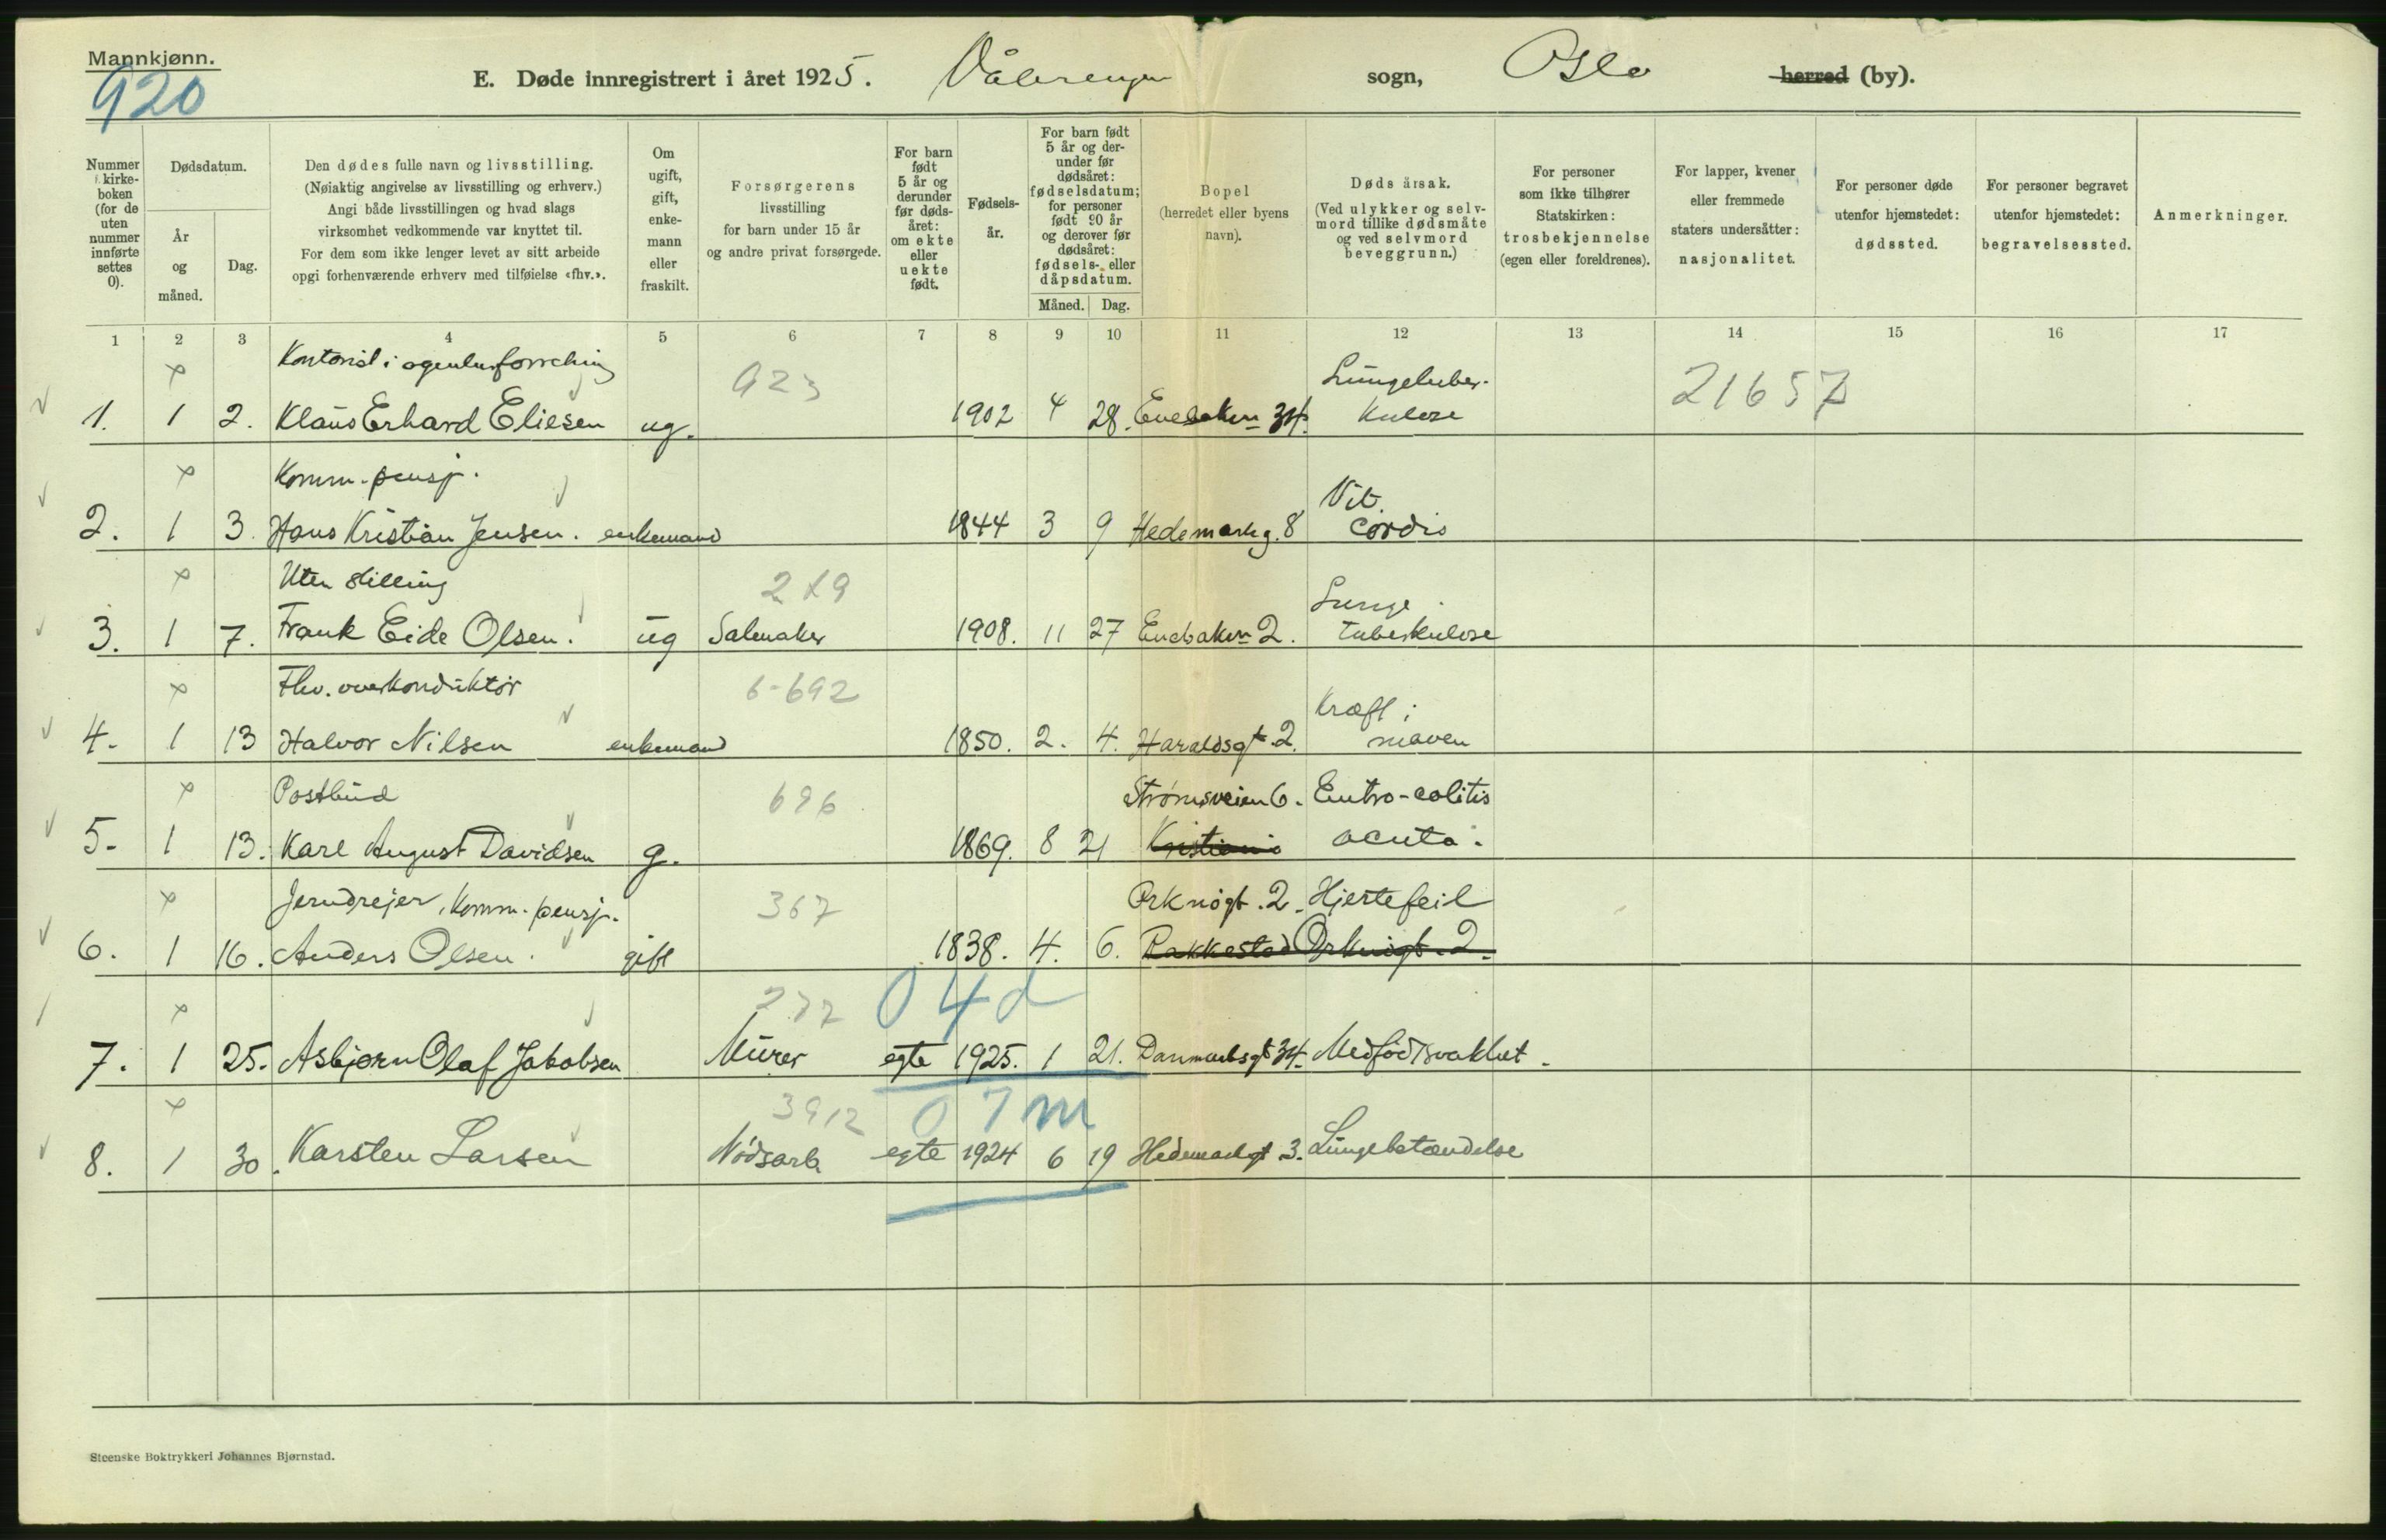 Mannkjønn.
920
E. Døde innregistrert i året 1925. Vålerengen sogn, Oslo herred (by).
Nummer i kirke-boken (for de uten nummer innførte settes 0).
Dødsdatum.
År og måned.
Dag.
Den dødes fulle navn og livsstilling.
(Nøiaktig angivelse av livsstilling og erhverv.)
Angi både livsstillingen og hvad slags
virksomhet vedkommende var knyttet til.
For dem som ikke lenger levet av sitt arbeide
opgi forhenværende erhverv med tilføielse «fhv.».
Om ugift, gift, enke-mann eller fraskilt.
Forsørgerens
livsstilling
for barn under 15 år
og andre privat forsørgede.
For barn født 5 år og derunder før døds-året: om ekte eller uekte født.
Fødsels-år.
For barn født 5 år og der-under før dødsåret: fødselsdatum; for personer født 90 år og derover før dødsåret: fødsels- eller dåpsdatum.
Måned. Dag.
Bopel
(herredet eller byens
navn).
Dødsårsak.
(Ved ulykker og selv-
mord tillike dødsmåte
og ved selvmord
beveggrunn.)
For personer
som ikke tilhører
Statskirken:
trosbekjennelse
(egen eller foreldrenes).
For lapper, kvener
eller fremmede
staters undersåtter:
nasjonalitet.
For personer døde
utenfor hjemstedet:
dødssted.
For personer begravet
utenfor hjemstedet:
begravelsessted.
Anmerkninger.
1 2 3 4 5 6 7 8 9 10 11 12 13 14 15 16 17
Kontorist i agenturforretning 923 Lungetuber- 21657
1. 1 2. Klaus Erhard Eliesen ug. 1902 4 28. Enebakkvn 34. kulose
Komm. pensj. Vit.
2. 1 3. Hans Kristian Jensen. enkemand 1844 3 9 Hedemarkg. 8 cordis
Uten stilling 219 Lunge
3. 1 7. Frank Eide Olsen. ug Salmaker 1908. 11 27 Enebakvn 2. tuberkulose
Fhv. overkonduktør 6-692 Kræft i
4. 1 13 Halvor Nilsen enkemand 1850. 2. 4. Haraldsgt. 2. maven
Postbud 696 Strømsveien 6. Entro-colitis
5. 1 13. Karl August Davidsen g. 1869. 8 21 Kristiania acuta.
Jerndrejer, komm. pensj. 367 Orknøgt. 2. Hjertefeil
6. 1 16. Anders Olsen. gift 1838. 4. 6. Rakkestad Orknøgt. 2.
04d
7. 1 25. Asbjørn Olaf Jakobsen Murer egte 1925. 1 21. Danmarksgt 34. Medfødt svakhet.
3912 07m
8. 1 30. Karsten Larsen Nødsarb egte 1924 6 19 Hedemarkgt 3. Lungebetændelse
Steenske Boktrykkeri Johannes Bjørnstad.